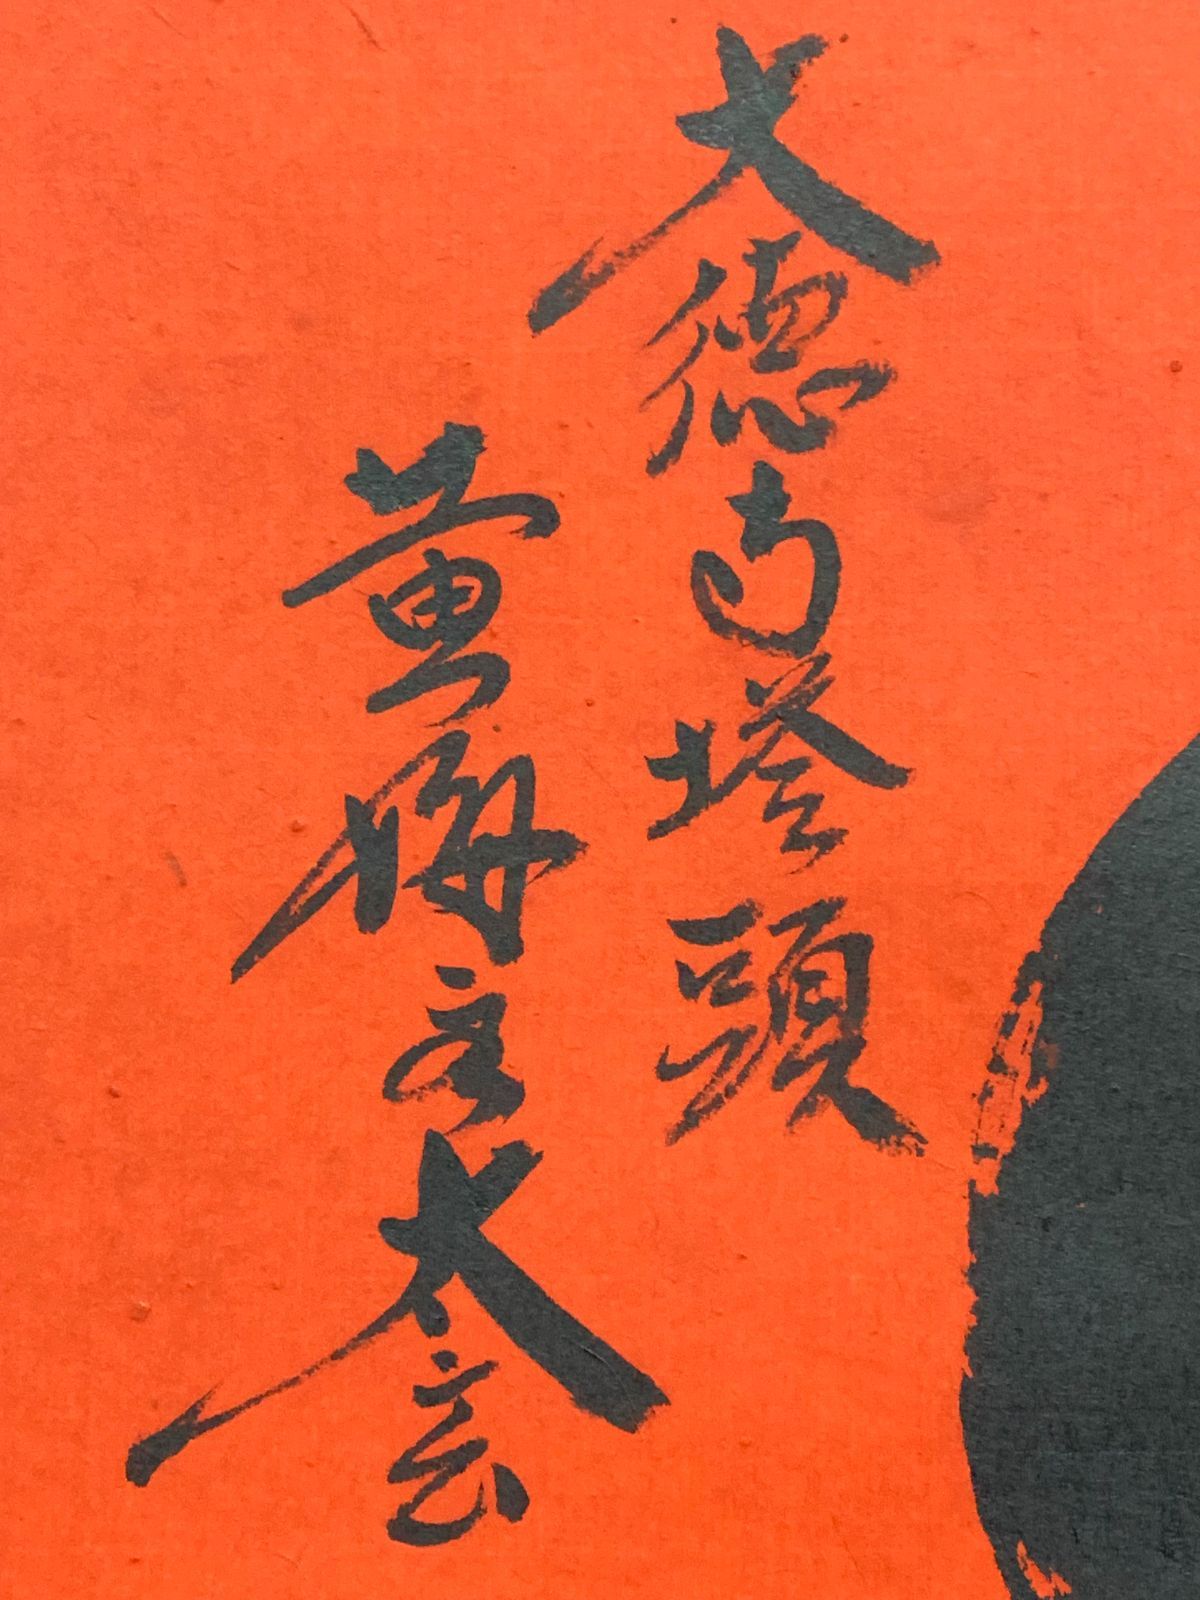 大徳寺塔頭
黄梅主太玄